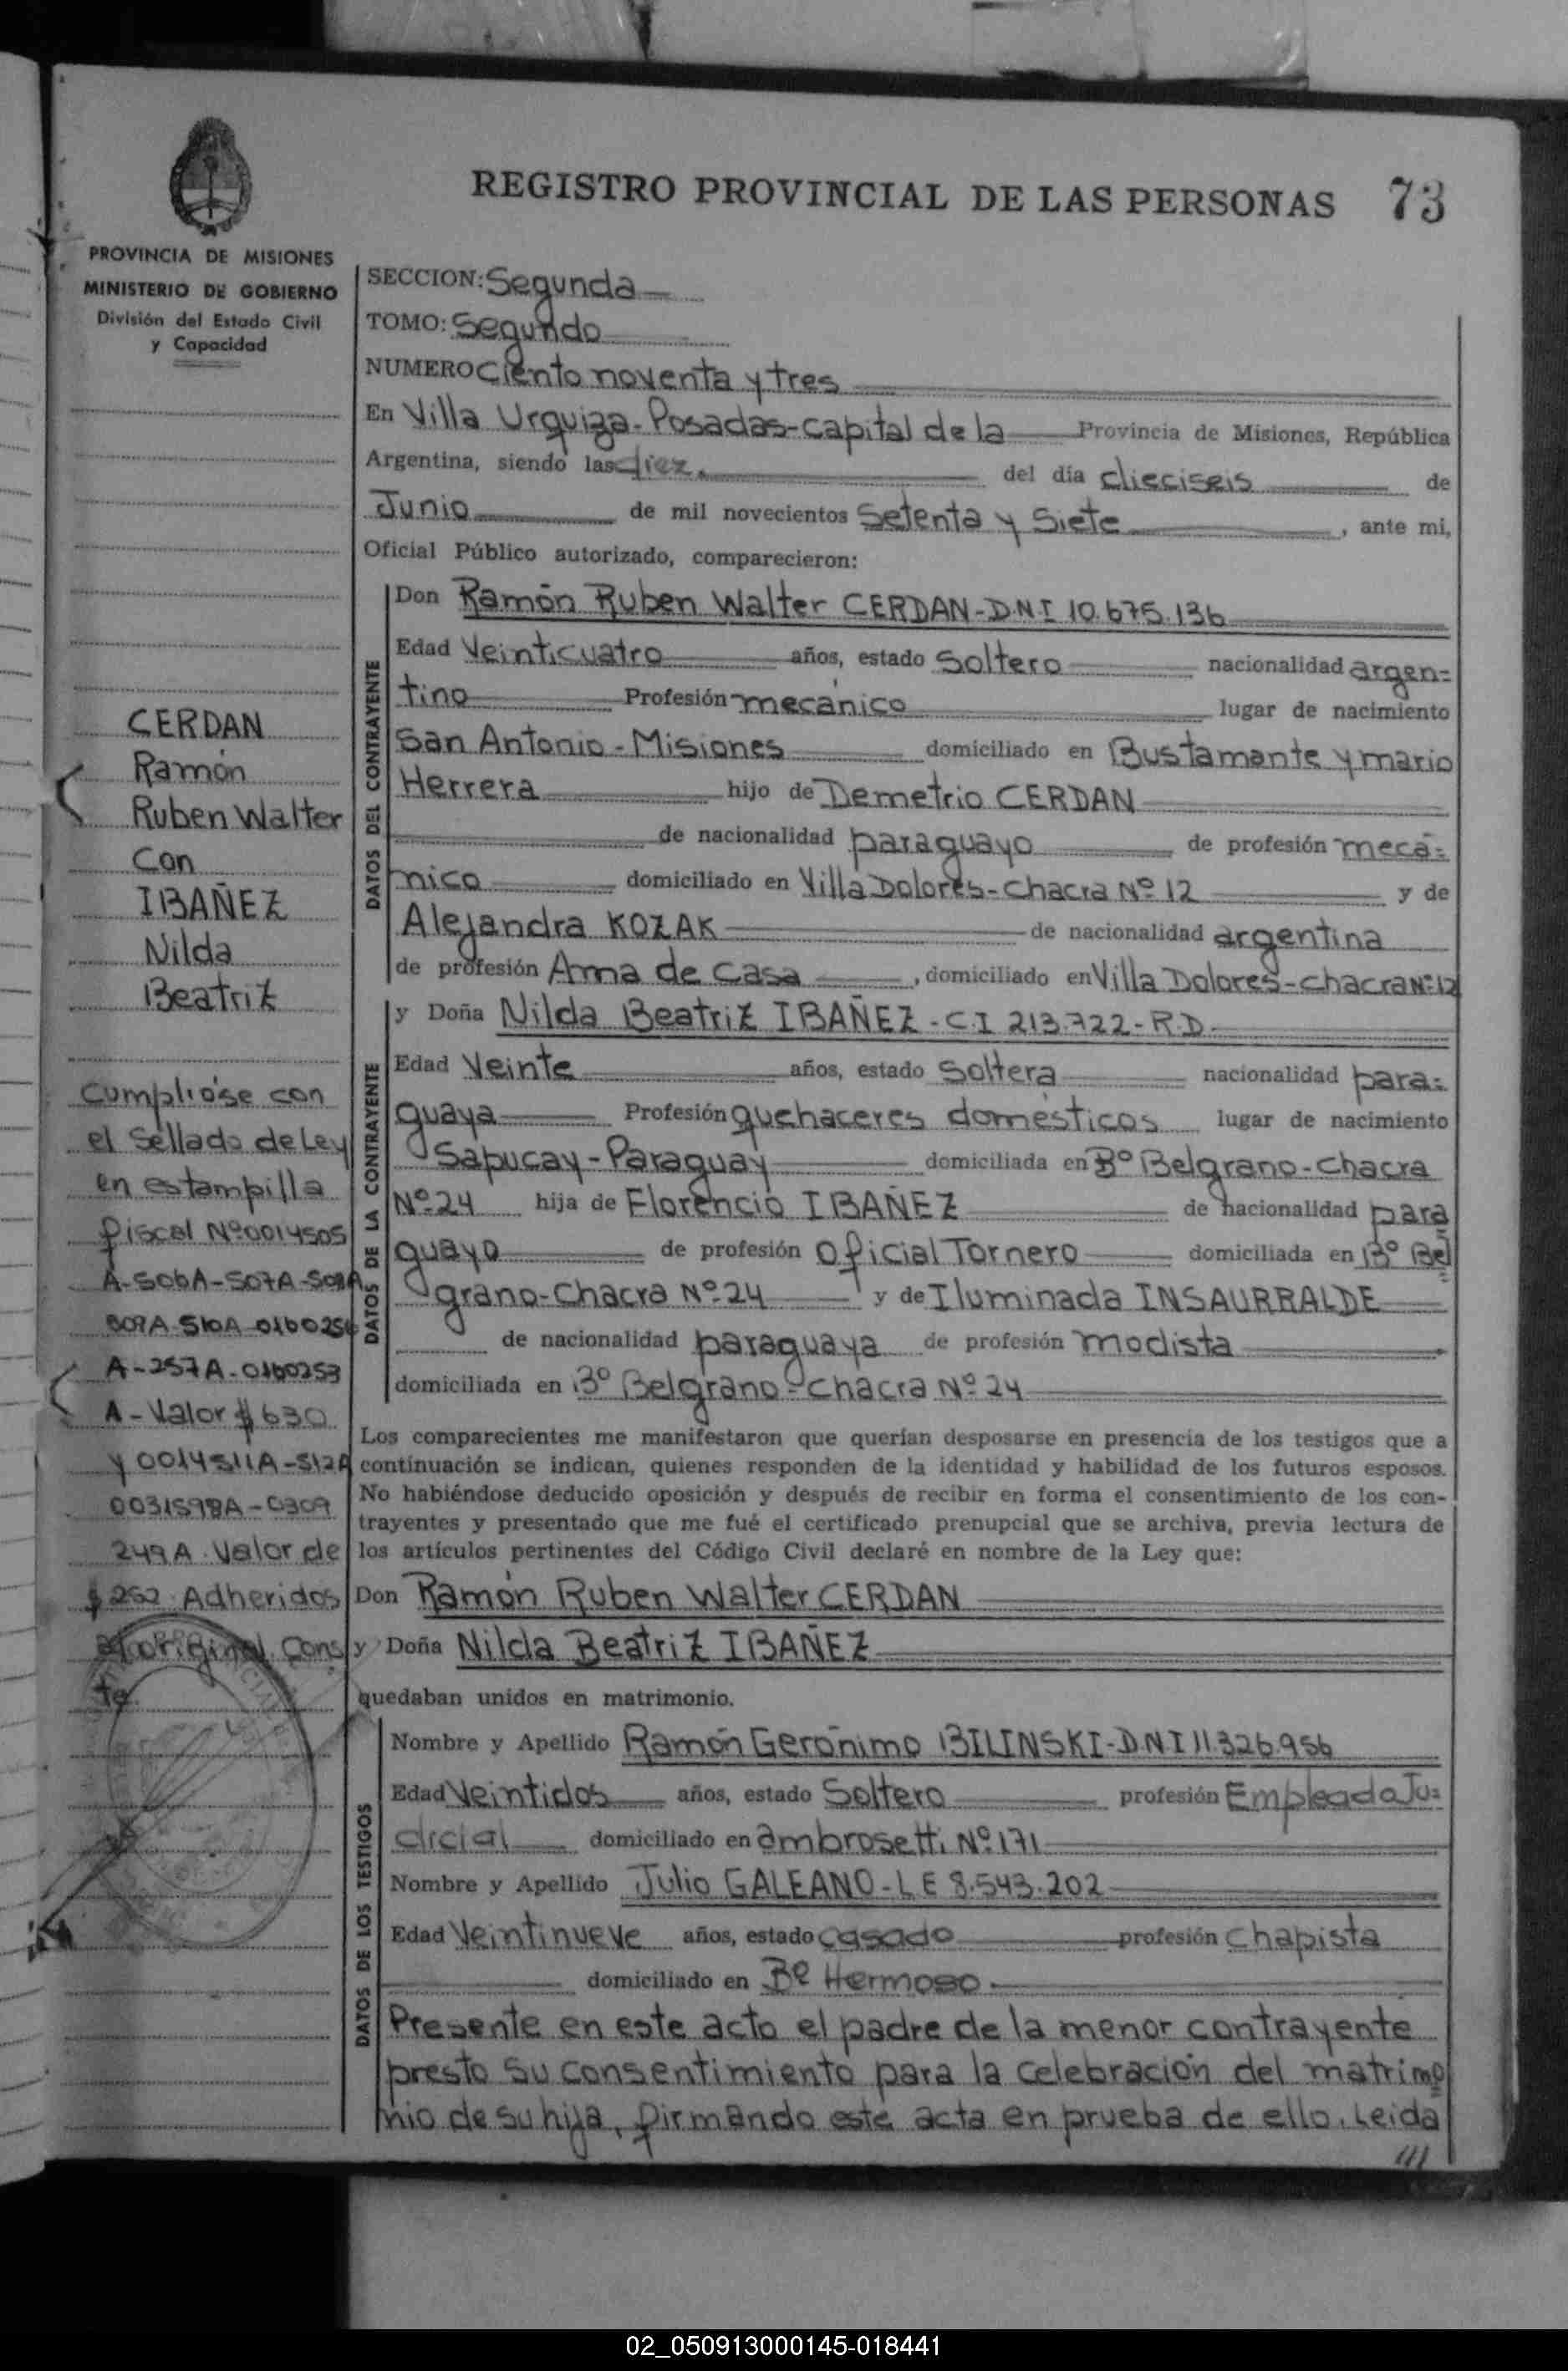 REGISTRO PROVINCIAL DE LAS PERSONAS 73
PROVINCIA DE MISIONES
MINISTERIO DE GOBIERNO
División del Estado Civil
y Capacidad
CERDAN
Ramón
Ruben Walter
Con
IBAÑEZ
Nilda
Beatriz
Cumplióse con
el Sellado de Ley
en estampilla
fiscal Nº0014505
A-506A-507A-508A
509A-510A-0160256
A-257A-0160253
A-Valor $ 630
y 0014511A-512A
0031598A-0309
249A. Valor de
$ 252. Adheridos
al original. Cons
te.
SECCION: Segunda
TOMO: Segundo
NUMERO Ciento noventa y tres
En Villa Urquiza-Posadas-capital de la Provincia de Misiones, República
Argentina, siendo las diez. del día dieciseis de
Junio de mil novecientos Setenta y Siete, ante mi,
Oficial Público autorizado, comparecieron:
DATOS DEL CONTRAYENTE
Don Ramón Ruben Walter CERDAN-D.N.I 10.675.136
Edad Veinticuatro años, estado Soltero nacionalidad argen=
tino Profesión mecánico lugar de nacimiento
San Antonio-Misiones domiciliado en Bustamante y mario
Herrera hijo de Demetrio CERDAN
de nacionalidad paraguayo de profesión mecá=
nico domiciliado en Villa Dolores-Chacra Nº 12 y de
Alejandra KOZAK de nacionalidad argentina
de profesión Ama de Casa, domiciliado en Villa Dolores-chacra Nº12
DATOS DE LA CONTRAYENTE
y Doña Nilda Beatriz IBAÑEZ-C.I 213.722-R.D.
Edad Veinte años, estado Soltera nacionalidad para=
guaya Profesión quehaceres domésticos lugar de nacimiento
Sapucay-Paraguay domiciliada en Bº Belgrano-Chacra
Nº24 hija de Florencio IBAÑEZ de nacionalidad para
guayo de profesión Oficial Tornero domiciliada en Bº Bel
grano-Chacra Nº24 y de Iluminada INSAURRALDE
de nacionalidad paraguaya de profesión modista
domiciliada en Bº Belgrano-Chacra Nº24
Los comparecientes me manifestaron que querían desposarse en presencia de los testigos que a
continuación se indican, quienes responden de la identidad y habilidad de los futuros esposos.
No habiéndose deducido oposición y después de recibir en forma el consentimiento de los con-
trayentes y presentado que me fué el certificado prenupcial que se archiva, previa lectura de
los artículos pertinentes del Código Civil declaré en nombre de la Ley que:
Don Ramón Ruben Walter CERDAN
y Doña Nilda Beatriz IBAÑEZ
quedaban unidos en matrimonio.
DATOS DE LOS TESTIGOS
Nombre y Apellido Ramón Gerónimo BILINSKI-D.N.I 11.326.956
Edad Veintidos años, estado Soltero profesión Empleada Ju=
dicial domiciliado en ambrosetti Nº171
Nombre y Apellido Julio GALEANO-L E 8.543.202
Edad Veintinueve años, estado casado profesión Chapista
domiciliado en Bº Hermoso.
Presente en este acto el padre de la menor contrayente
presto su consentimiento para la celebración del matrimo
nio de su hija, firmando este acta en prueba de ello. Leida
///
02_050913000145-018441